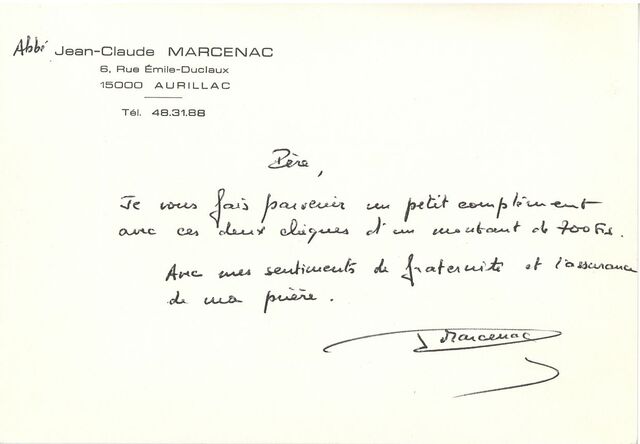 Abbé Jean-Claude MARCENAC
6, Rue Émile-Duclaux
15000 AURILLAC
Tél. 48.31.88
Père,
Je vous fais parvenir un petit complément
avec ces deux chèques d'un montant de 700 Frs.
Avec mes sentiments de fraternité et l'assurance
de ma prière.
J Marcenac